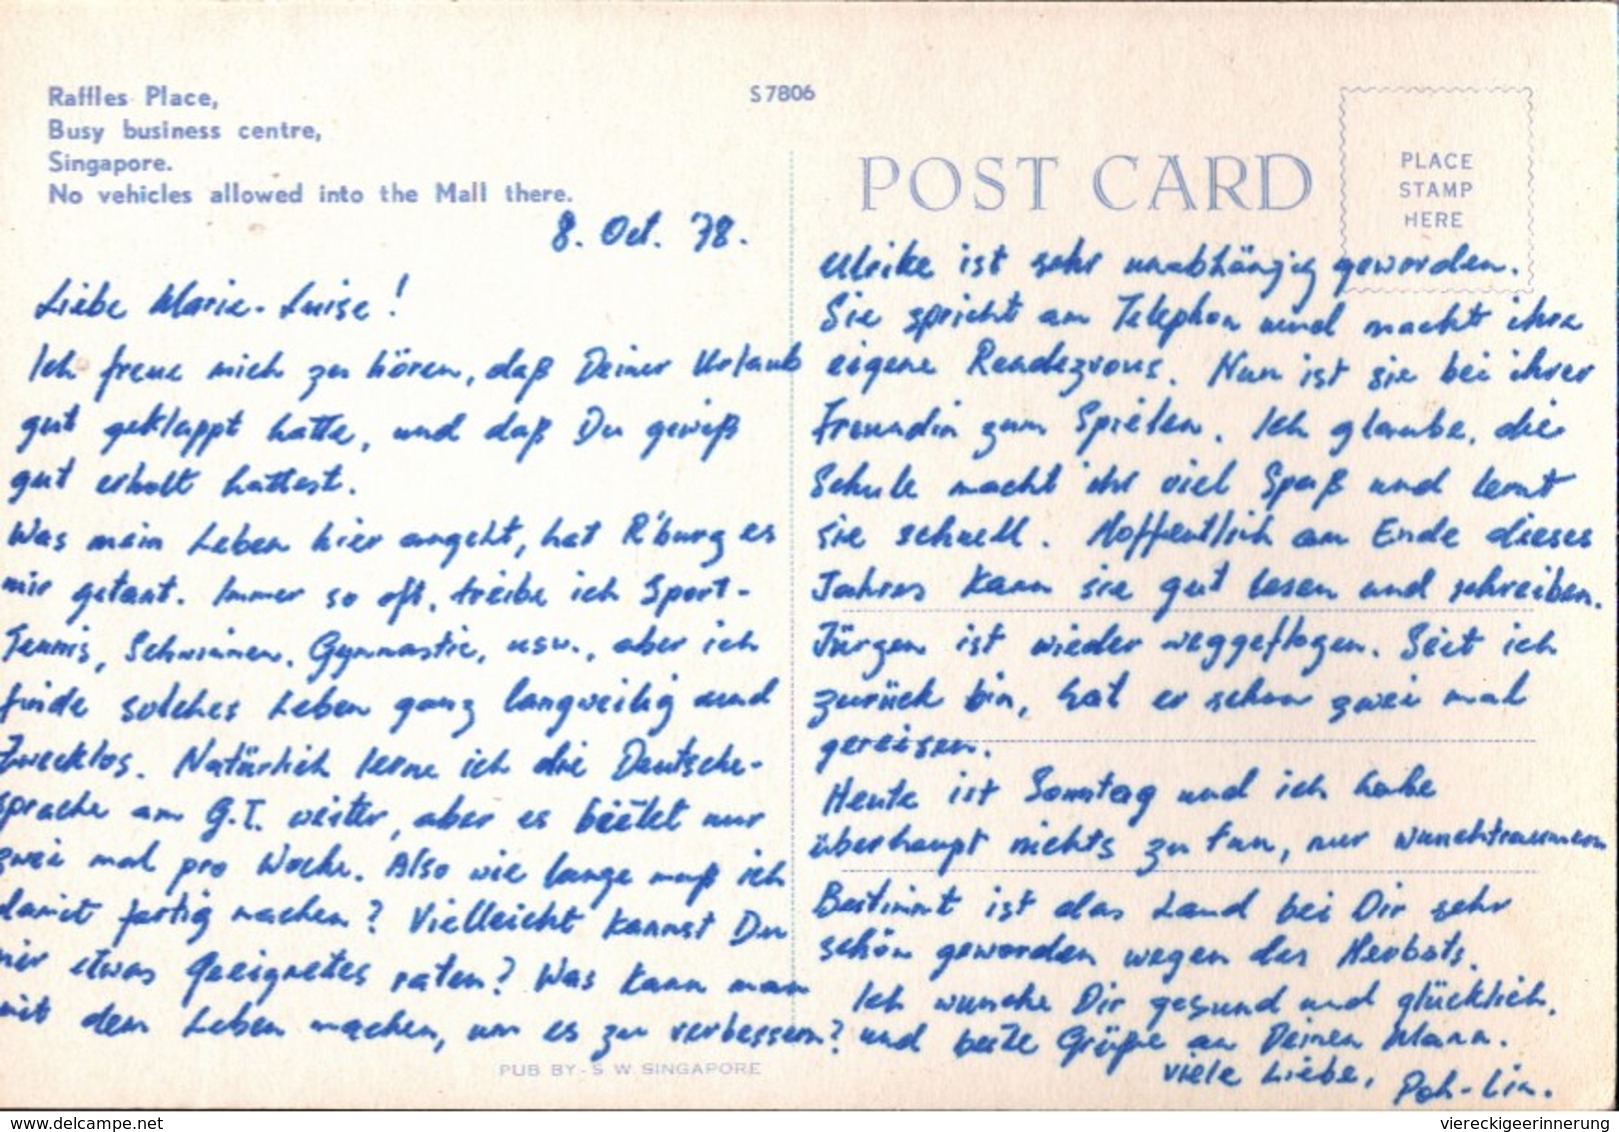 Raffles Place,
Busy business centre,
Singapore.
No vehicles allowed into the Mall there.
S7806
POST CARD
PLACE
STAMP
HERE
8. Oct. '78.
Liebe Marie-Luise!
Ich freue mich zu hören, daß Deiner Urlaub
gut geklappt hatte, und daß Du gewiß
gut erholt hattest.
Was mein Leben hier angeht, hat R'burg es
mir getant. Immer so oft, treibe ich Sport-
Tennis, Schwimmen, Gymnastic, usw., aber ich
finde solches Leben ganz langweilig und
Zwecklos. Natürlich lerne ich die Deutsche-
sprache am G.I. weiter, aber es bietet nur
zwei mal pro Woche. Also wie lange muß ich
damit fertig machen? Vielleicht kannst Du
mir etwas Geeignetes raten? Was kann man
mit dem Leben machen, um es zu verbessern?
Ulrike ist sehr unabhängig geworden.
Sie spricht am Telephon und macht ihre
eigene Rendezvous. Nun ist sie bei ihrer
Freundin zum Spielen. Ich glaube, die
Schule macht ihr viel Spaß und lernt
sie schnell. Hoffentlich am Ende dieses
Jahres kann sie gut lesen und schreiben.
Jürgen ist wieder weggeflogen. Seit ich
zurück bin, hat er schon zwei mal
gereisen.
Heute ist Sonntag und ich habe
überhaupt nichts zu tun, nur wunchtraumen
Bestimmt ist das Land bei Dir sehr
schön geworden wegen des Herbsts.
Ich wunche Dir gesund und glücklich.
und beste Grüße an Deinen Mann.
viele Liebe, Poh-Lin.
PUB BY-S.W. SINGAPORE
Raffles Place.net
viereckigeerinnerung